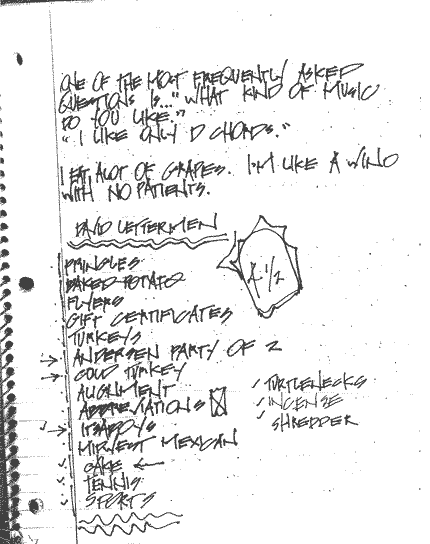 ONE OF THE MOST FREQUENTLY ASKED
QUESTIONS IS..."WHAT KIND OF MUSIC
DO YOU LIKE."
"I LIKE ONLY D CHORDS."
I EAT ALOT OF GRAPES. I'M LIKE A WINO
WITH NO PATIENTS.
DAVID LETTERMEN
4 1/2
PRINGLES
BAKED POTATO
FLYERS
GIFT CERTIFICATES
TURKEYS
ANDERSEN PARTY OF 2
COLD TURKEY
ALIGNMENT
ABBREVIATIONS
ITSABOYS
MIDWEST MEXICAN
CAKE
TENNIS
SPORTS
TURTLENECKS
INCENSE
SHREDDER